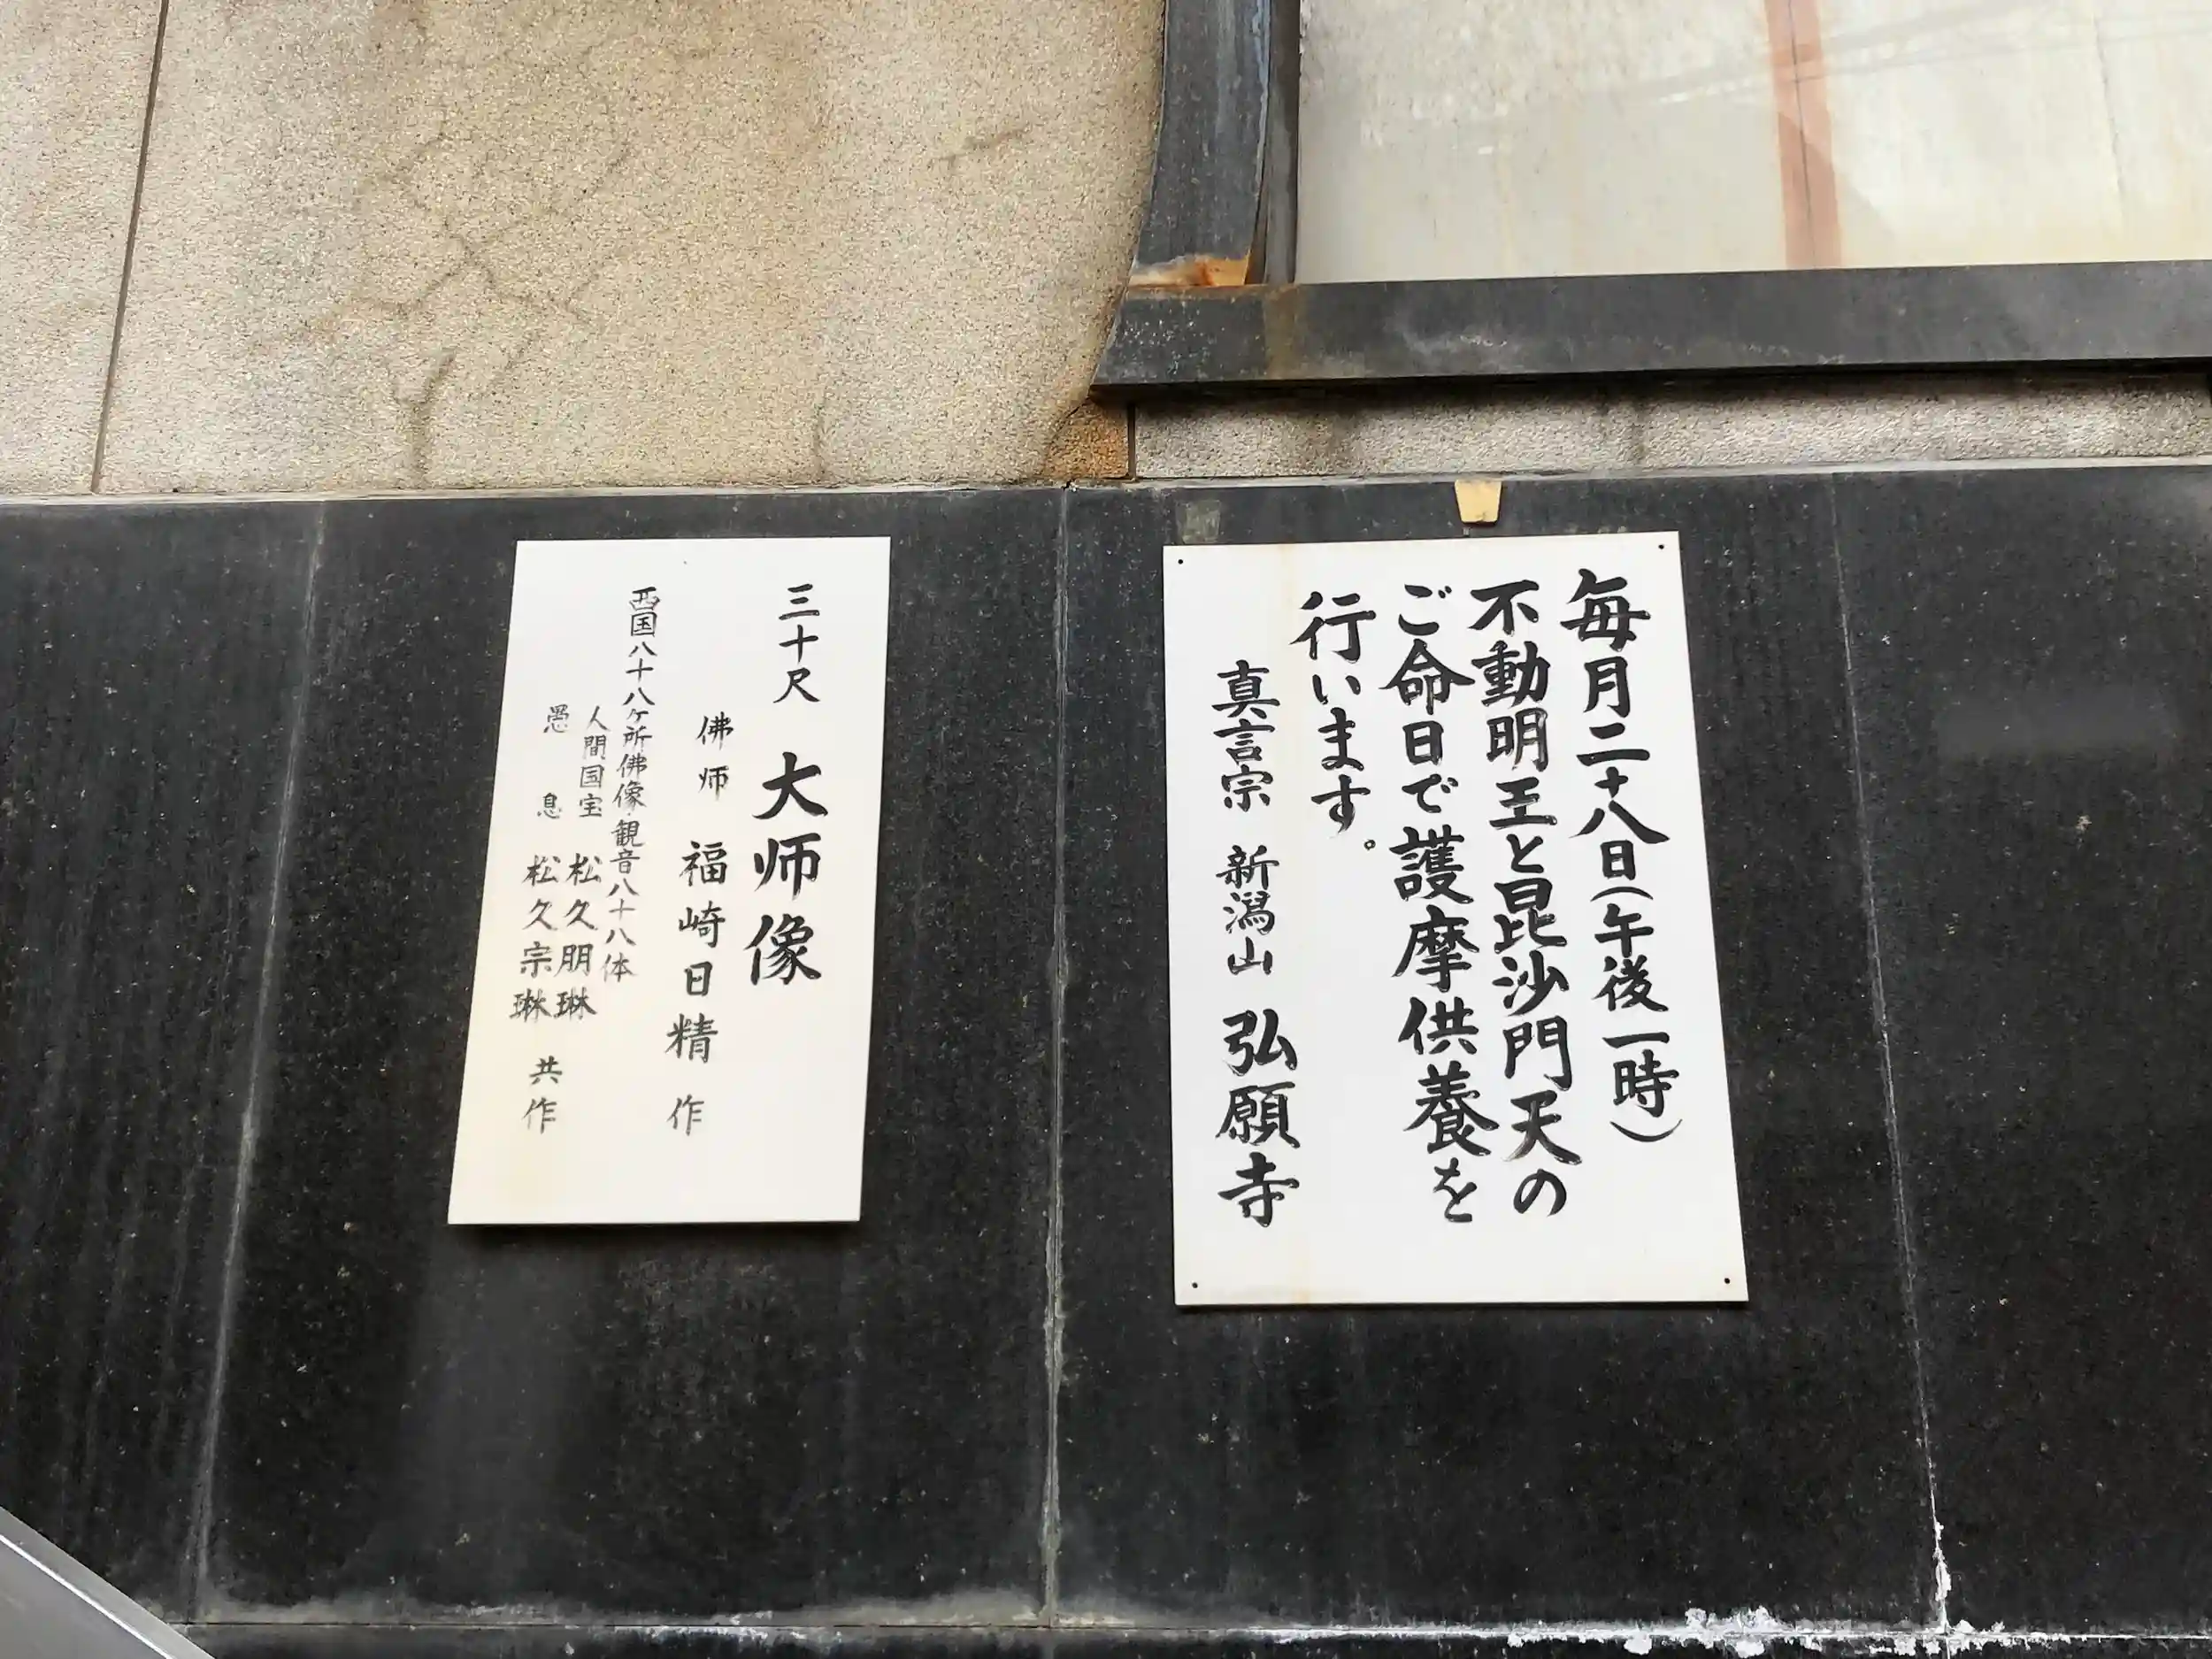 毎月二十八日（午後一時）
不動明王と毘沙門天の
ご命日で護摩供養を
行います。
真言宗 新潟山 弘願寺
三十尺 大师像
佛师 福崎日精 作
西国八十八ヶ所佛像・観音八十八体
人間国宝 松久朋琳
愚息 松久宗琳 共作